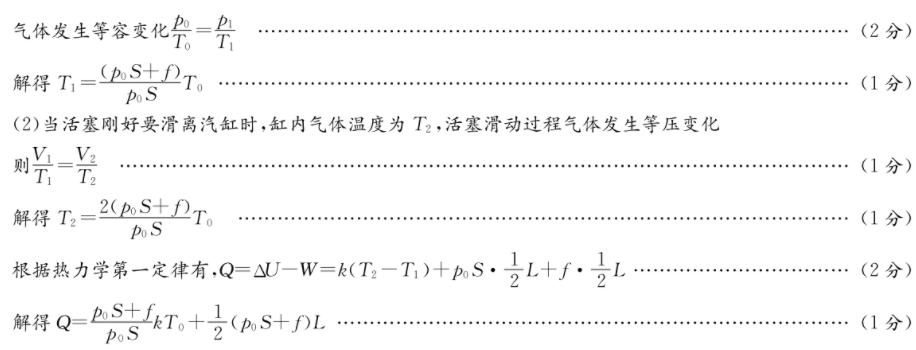 气体发生等容变化$\frac{p_0}{T_0}=\frac{p_1}{T_1}$ ……………………………………………………………………………(2分)
解得 $T_1=\frac{(p_0S+f)}{p_0S}T_0$ ……………………………………………………………………………(1分)
(2)当活塞刚好要滑离汽缸时,缸内气体温度为 $T_2$,活塞滑动过程气体发生等压变化
则$\frac{V_1}{T_1}=\frac{V_2}{T_2}$ ……………………………………………………………………………(1分)
解得 $T_2=\frac{2(p_0S+f)}{p_0S}T_0$ ……………………………………………………………………………(1分)
根据热力学第一定律有,$Q=\Delta U-W=k(T_2-T_1)+p_0S\cdot\frac{1}{2}L+f\cdot\frac{1}{2}L$ ……………………………(2分)
解得$Q=\frac{p_0S+f}{p_0S}kT_0+\frac{1}{2}(p_0S+f)L$ ……………………………………………………………(1分)